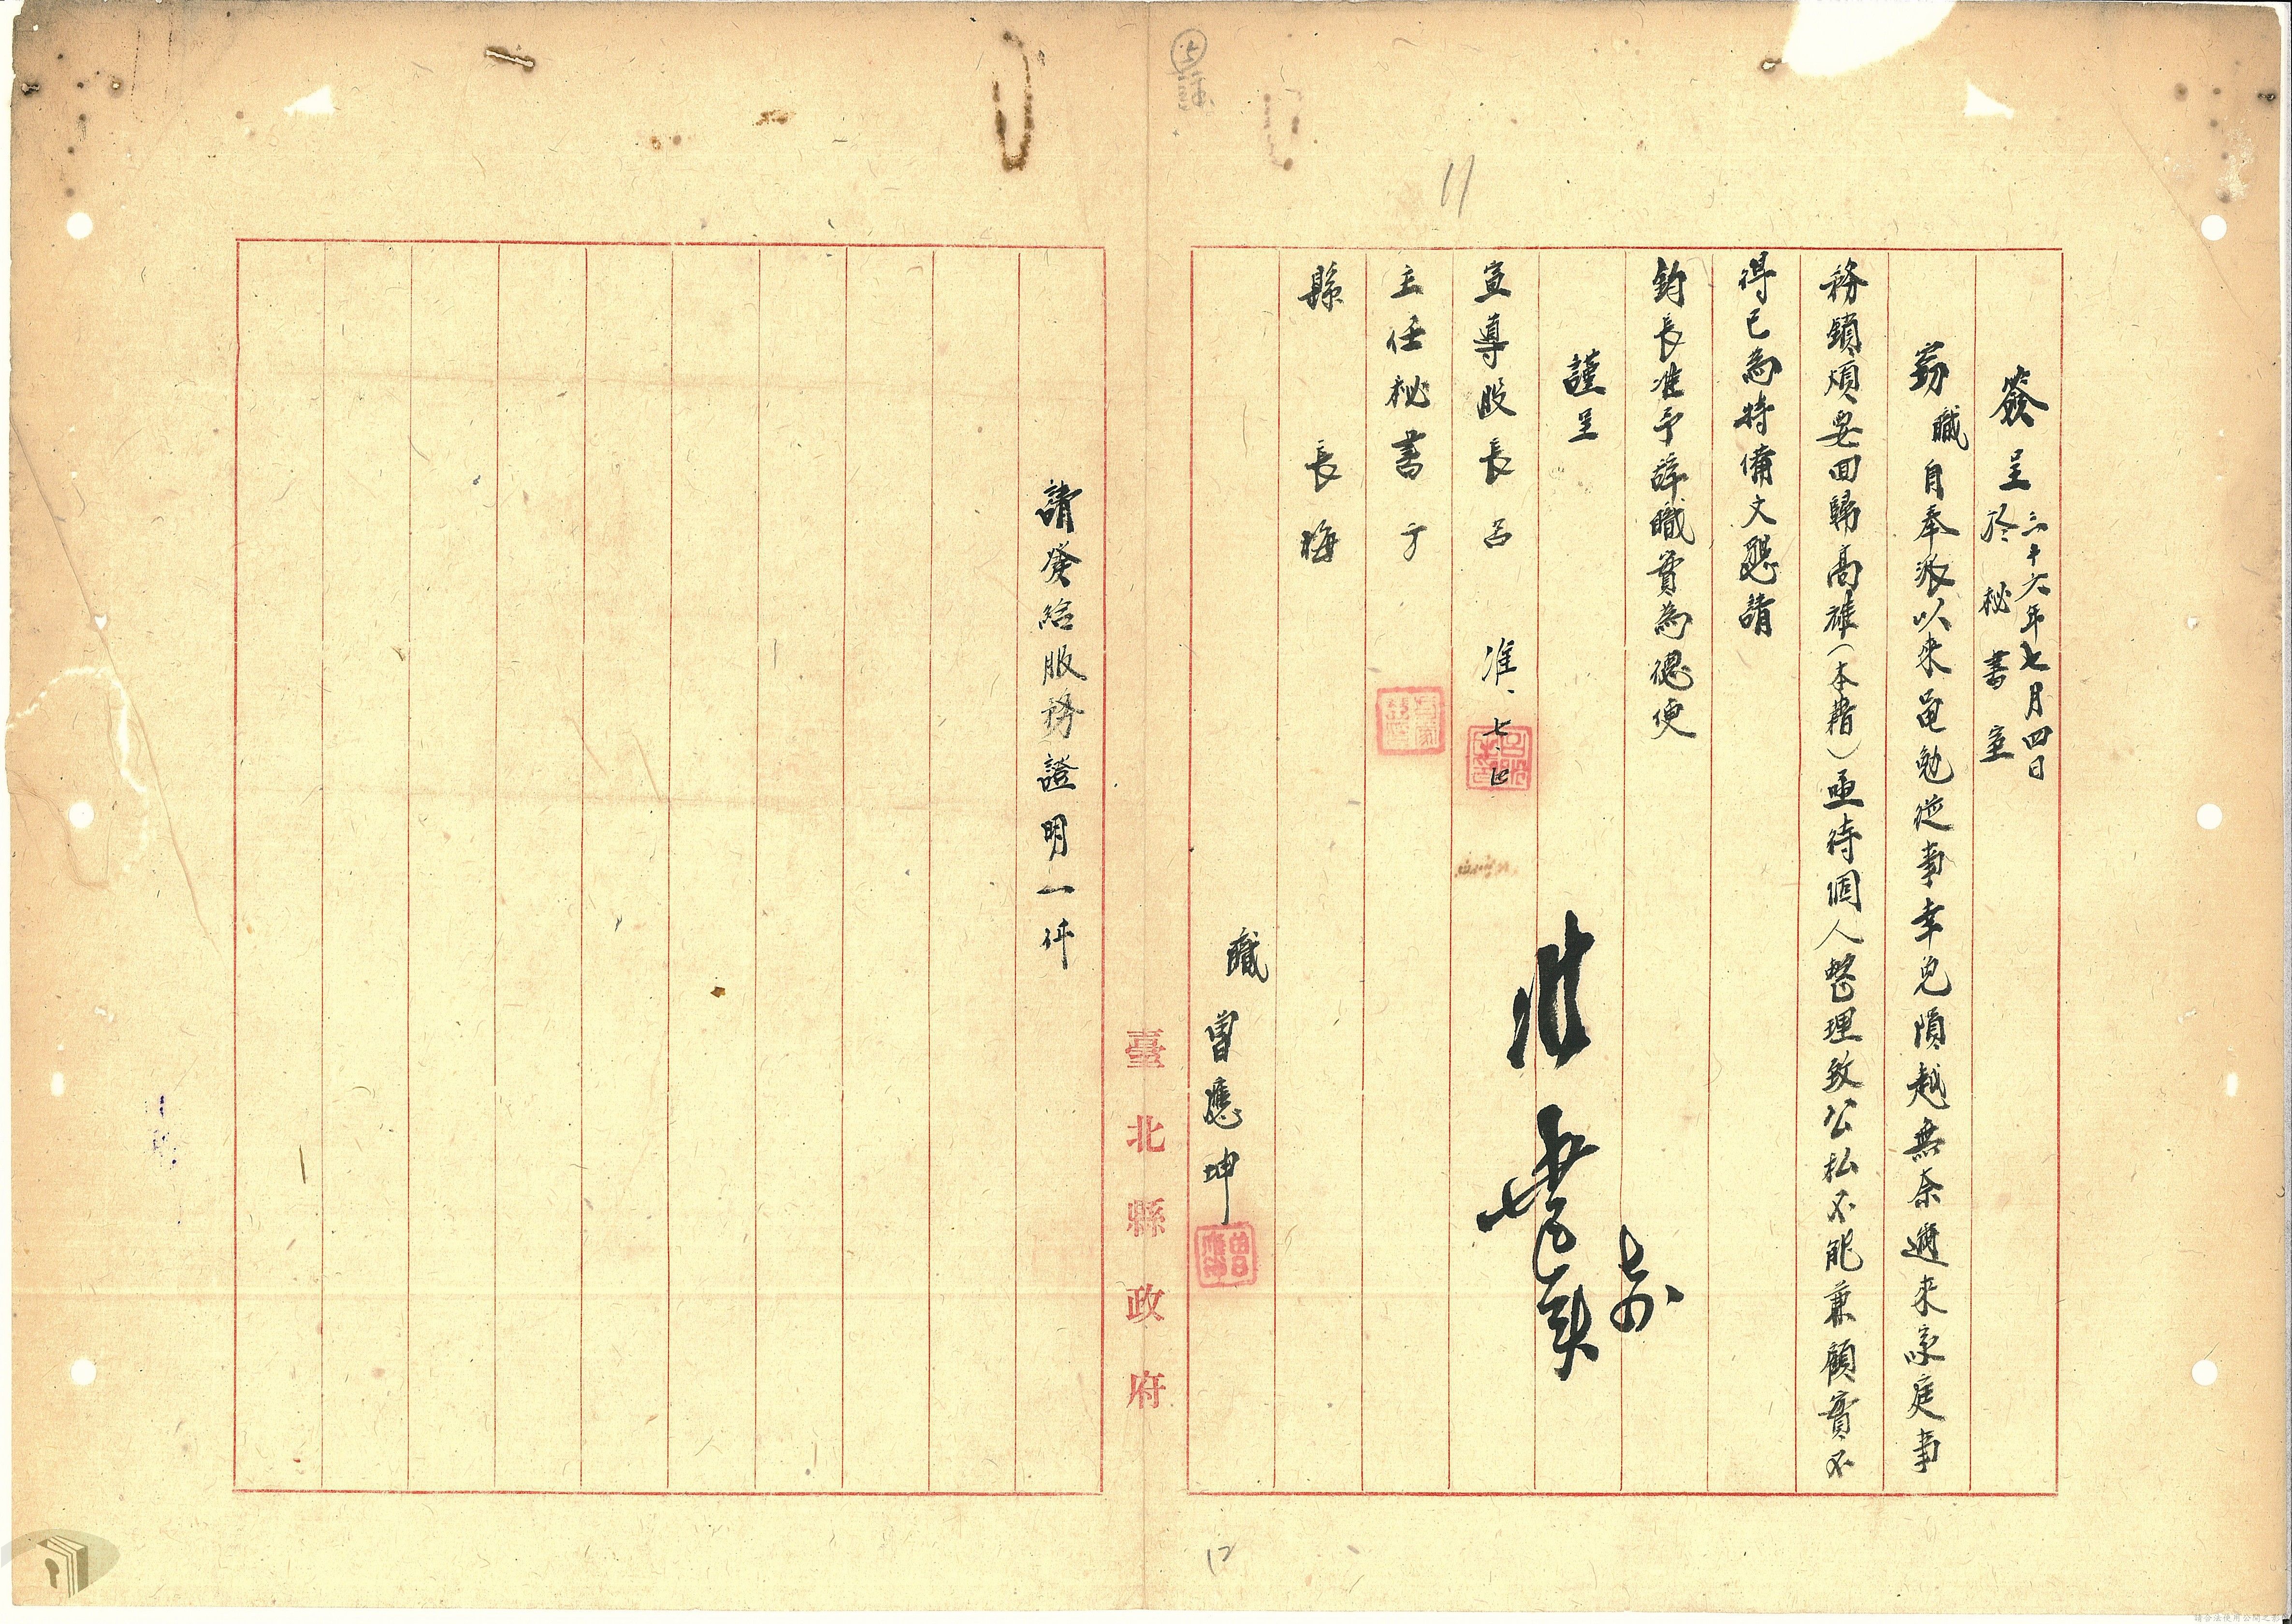 簽呈 三十六年七月四日
於秘書室
竊職自奉派以來黽勉從事幸免隕越無奈邇來家庭事
務鎖煩要回歸高雄（本籍）亟待個人整理致公私不能兼顧實不
得已為特備文懇請
鈞長准予辞職實為德便
謹呈
宣導股長呂 准 七.四
主任秘書于
縣長梅
准
七
職 曾應坤
臺北縣政府
請發給服務證明一件
11
12